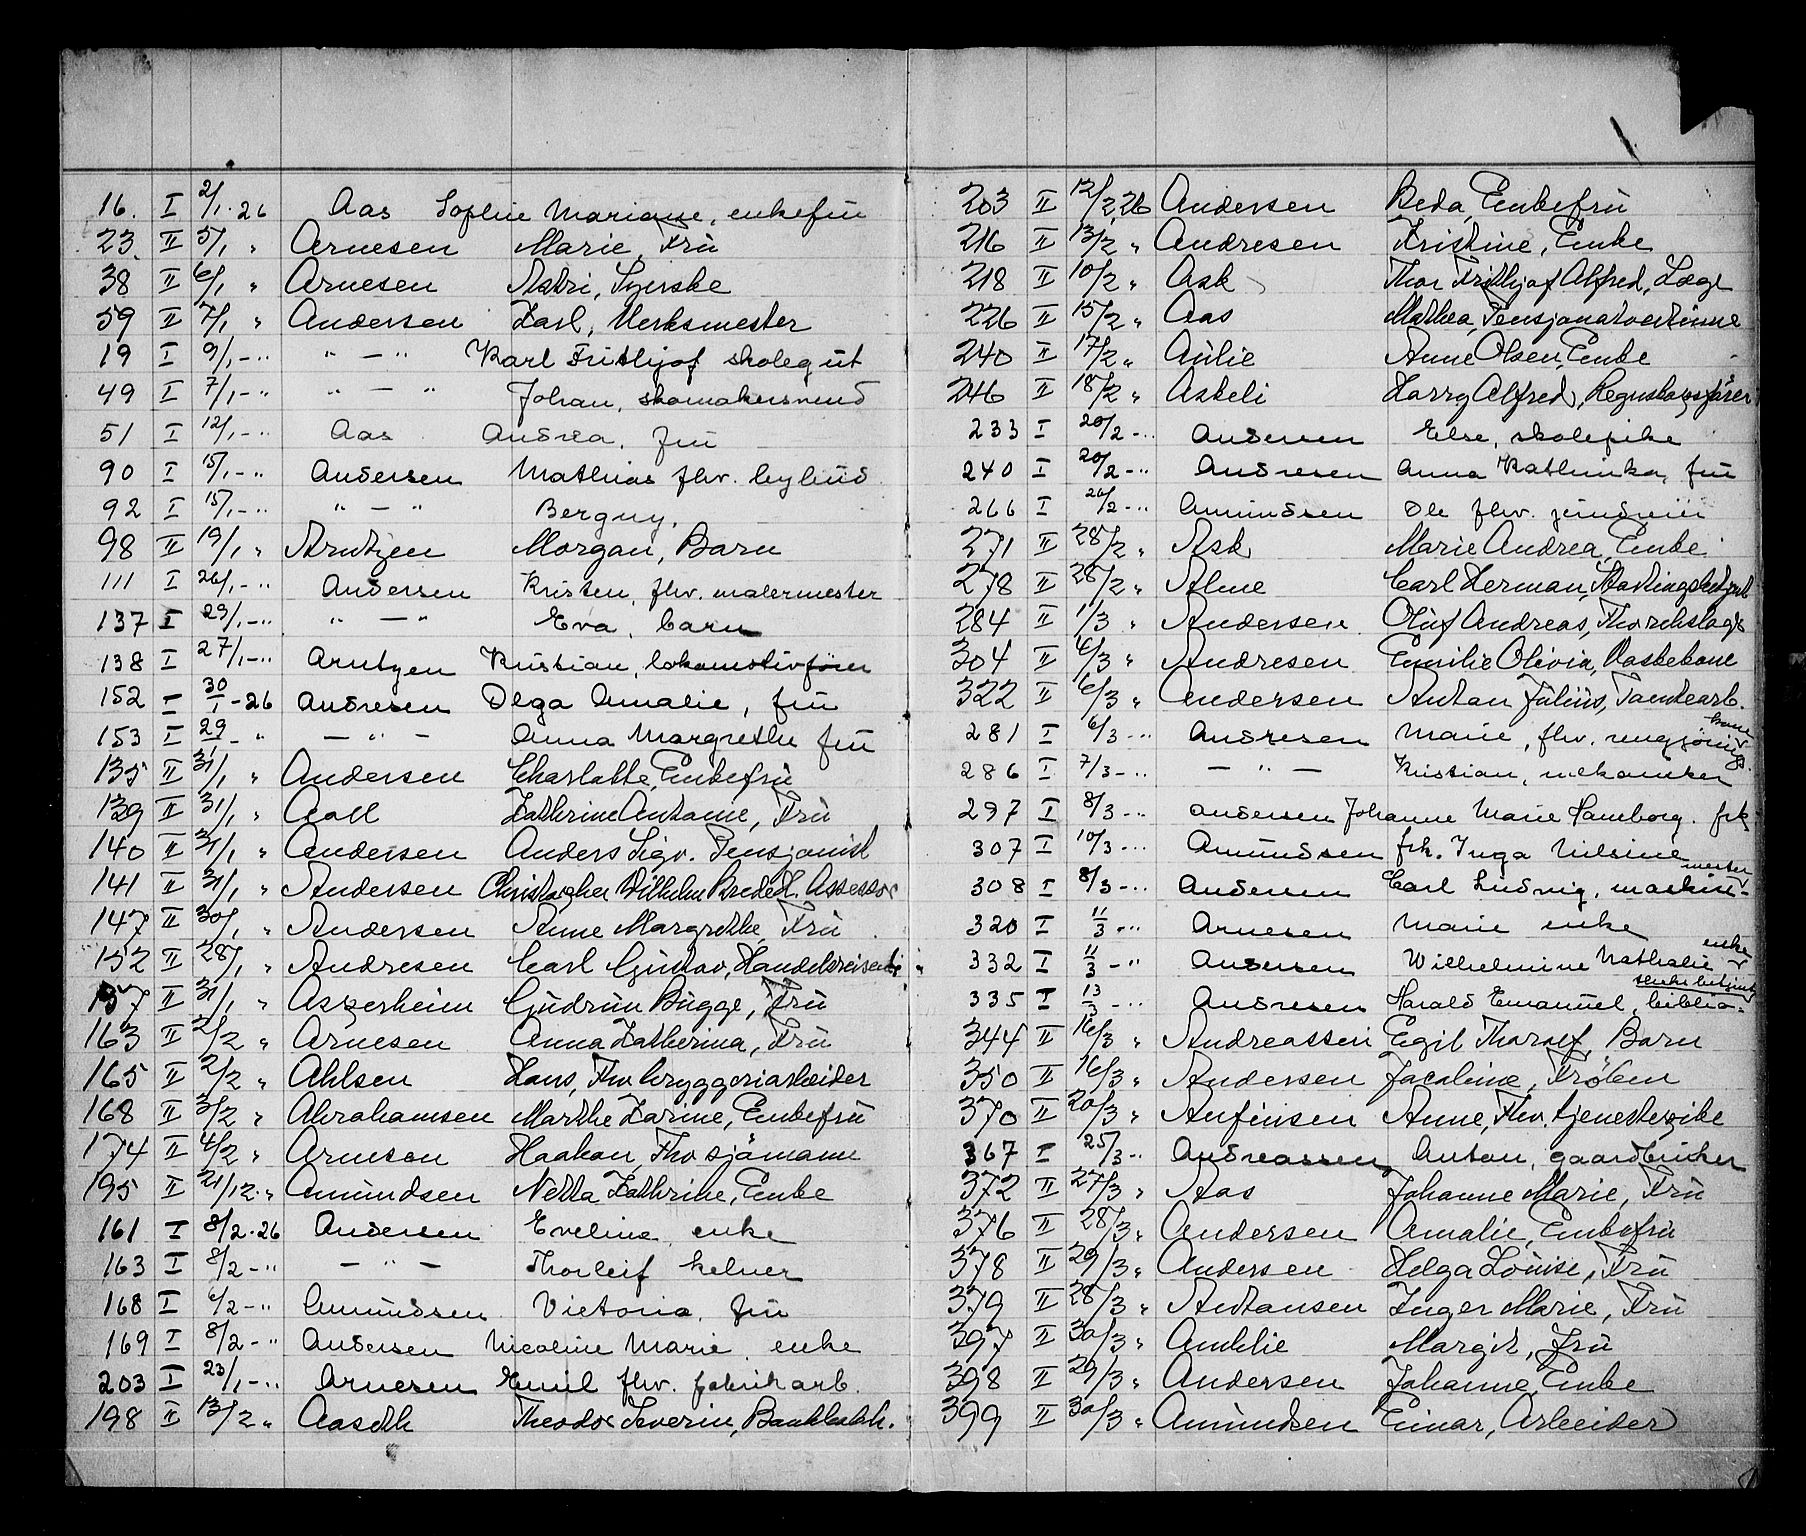 16. I 2/1.26 Aas Sophie Marianne, enkefru
23. II 5/1 " Arnesen Marie, Fru
38 II 6/1 " Arnesen Astri, Syerske
59 II 7/1 " Andersen Karl, Verksmester
19 I 9/1-" " — " Karl Frithjof skolegut
49 I 7/1-" " — " Johan, skomakersvend
51 I 12/1-" Aas Andrea, fru
90 I 15/1-" Andersen Mathias fhv. bybud
92 I 15/1-" " — " Bergny.
98 II 19/1 " Arntzen Morgan, Barn
111 I 26/1-" Andersen Kristen, fhv. malermester
137 I 29/1-" " — " Eva, barn
138 I 27/1-" Arntzen Kristian, lokomotivfører
152 I 30/1-26 Andresen Olga Amalie, fru
153 I 29/1-" — " — Anna Margrethe fru
135 II 31/1 " Andersen Charlotte, Enkefru
139 II 31/1 " Aall Kathrine Antonie, Fru
140 II 31/1 " Andersen Anders Sigv. Pensjonist
141 II 31/1 " Andersen Christopher Wilhelm Bredeh. Assessor
147 II 30/1 " Andersen Anne Margrethe, Fru
152 II 28/1 " Andresen Carl Gustav, Handelsreisende
157 II 31/1 " Asperheim Gudrun Bugge, Fru
163 II 2/2 " Arnesen Anna Katherina, Fru
165 II 2/2 " Ahlsen Hans, Fhv bryggeriarbeider
168 II 3/2 " Abrahamsen Marthe Karine, Enkefru
174 II 4/2 " Arnesen Haakon, Fhv sjømann
195 II 21/12 " Amundsen Netta Kathrine, Enke
161 I 8/2.26 Andersen Eveline, enke
163 I 8/2-" — " — Thorleif kelner
168 I 6/2-" Amundsen Victoria, fru
169 I 8/2-" Andersen Nicoline Marie, enke
203 I 23/1-" Arnesen Emil fhv. fabrikarb.
198 II 13/2 " Aaseth Theodor Severin,
203 II 12/2.26 Andersen Beda, Enkefru
216 II 13/2 " Andresen Kristine, Enke
218 II 10/2 " Ask Thor Frithjof Alfred, Læge
226 II 15/2 " Aas Mathea, Pensjonatvertinne
240 II 17/2 " Aulie Anne Olsen, Enke
246 II 18/2 " Askeli Harry Alfred, Regnskapsfører
233 I 20/2-" Andersen Else, skolepike
240 I 20/2-" Andresen Anna Kathinka, fru
266 I 26/2-" Amundsen Ole fhv.
271 II 28/2 " Ask Marie Andrea, Enke
278 II 28/2 " Alme Carl Herman,
284 II 1/3 " Andersen Oluf Andreas,
304 II 6/3 " Andresen Emilie Olivia, Vaskekone
322 II 6/3 " Andersen Anton Julius, Tomtearb.
281 I 6/3-" Andresen Marie, fhv. rengjørings-
kone
286 I 7/3-" — " — Kristian, mekaniker
297 I 8/3-" Andersen Johanne Marie Hamborg. frk
307 I 10/3-" Amundsen frk. Inga Nilsine
308 I 8/3-" Andersen Carl Ludvig, maskin-
mester
320 I 11/3-" Arnesen Marie enke
332 I 11/3-" Andersen Wilhelmine Nathalie
enke
335 I 13/3-" Andresen Harald Emanuel, biblio-
tekbetjent
344 II 16/3 " Andreassen Egil Thoralf, Barn
350 II 16/3 " Andersen Jacobine, Frøken
370 II 20/3 " Anfinsen Anne, Fhv. tjenestepike
367 I 25/3-" Andreassen Anton, gaardbruker
372 II 27/3 " Aas Johanne Marie, Fru
376 II 28/3 " Andersen Amalie, Enkefru
378 II 29/3 " Andersen Helga Louise, Fru
379 II 28/3 " Antonsen Inger Marie, Fru
397 II 30/3 " Amblie Margit, Fru
398 II 29/3 " Andersen Johanne, Enke
399 II 30/3 " Amundsen Einar, Arbeider